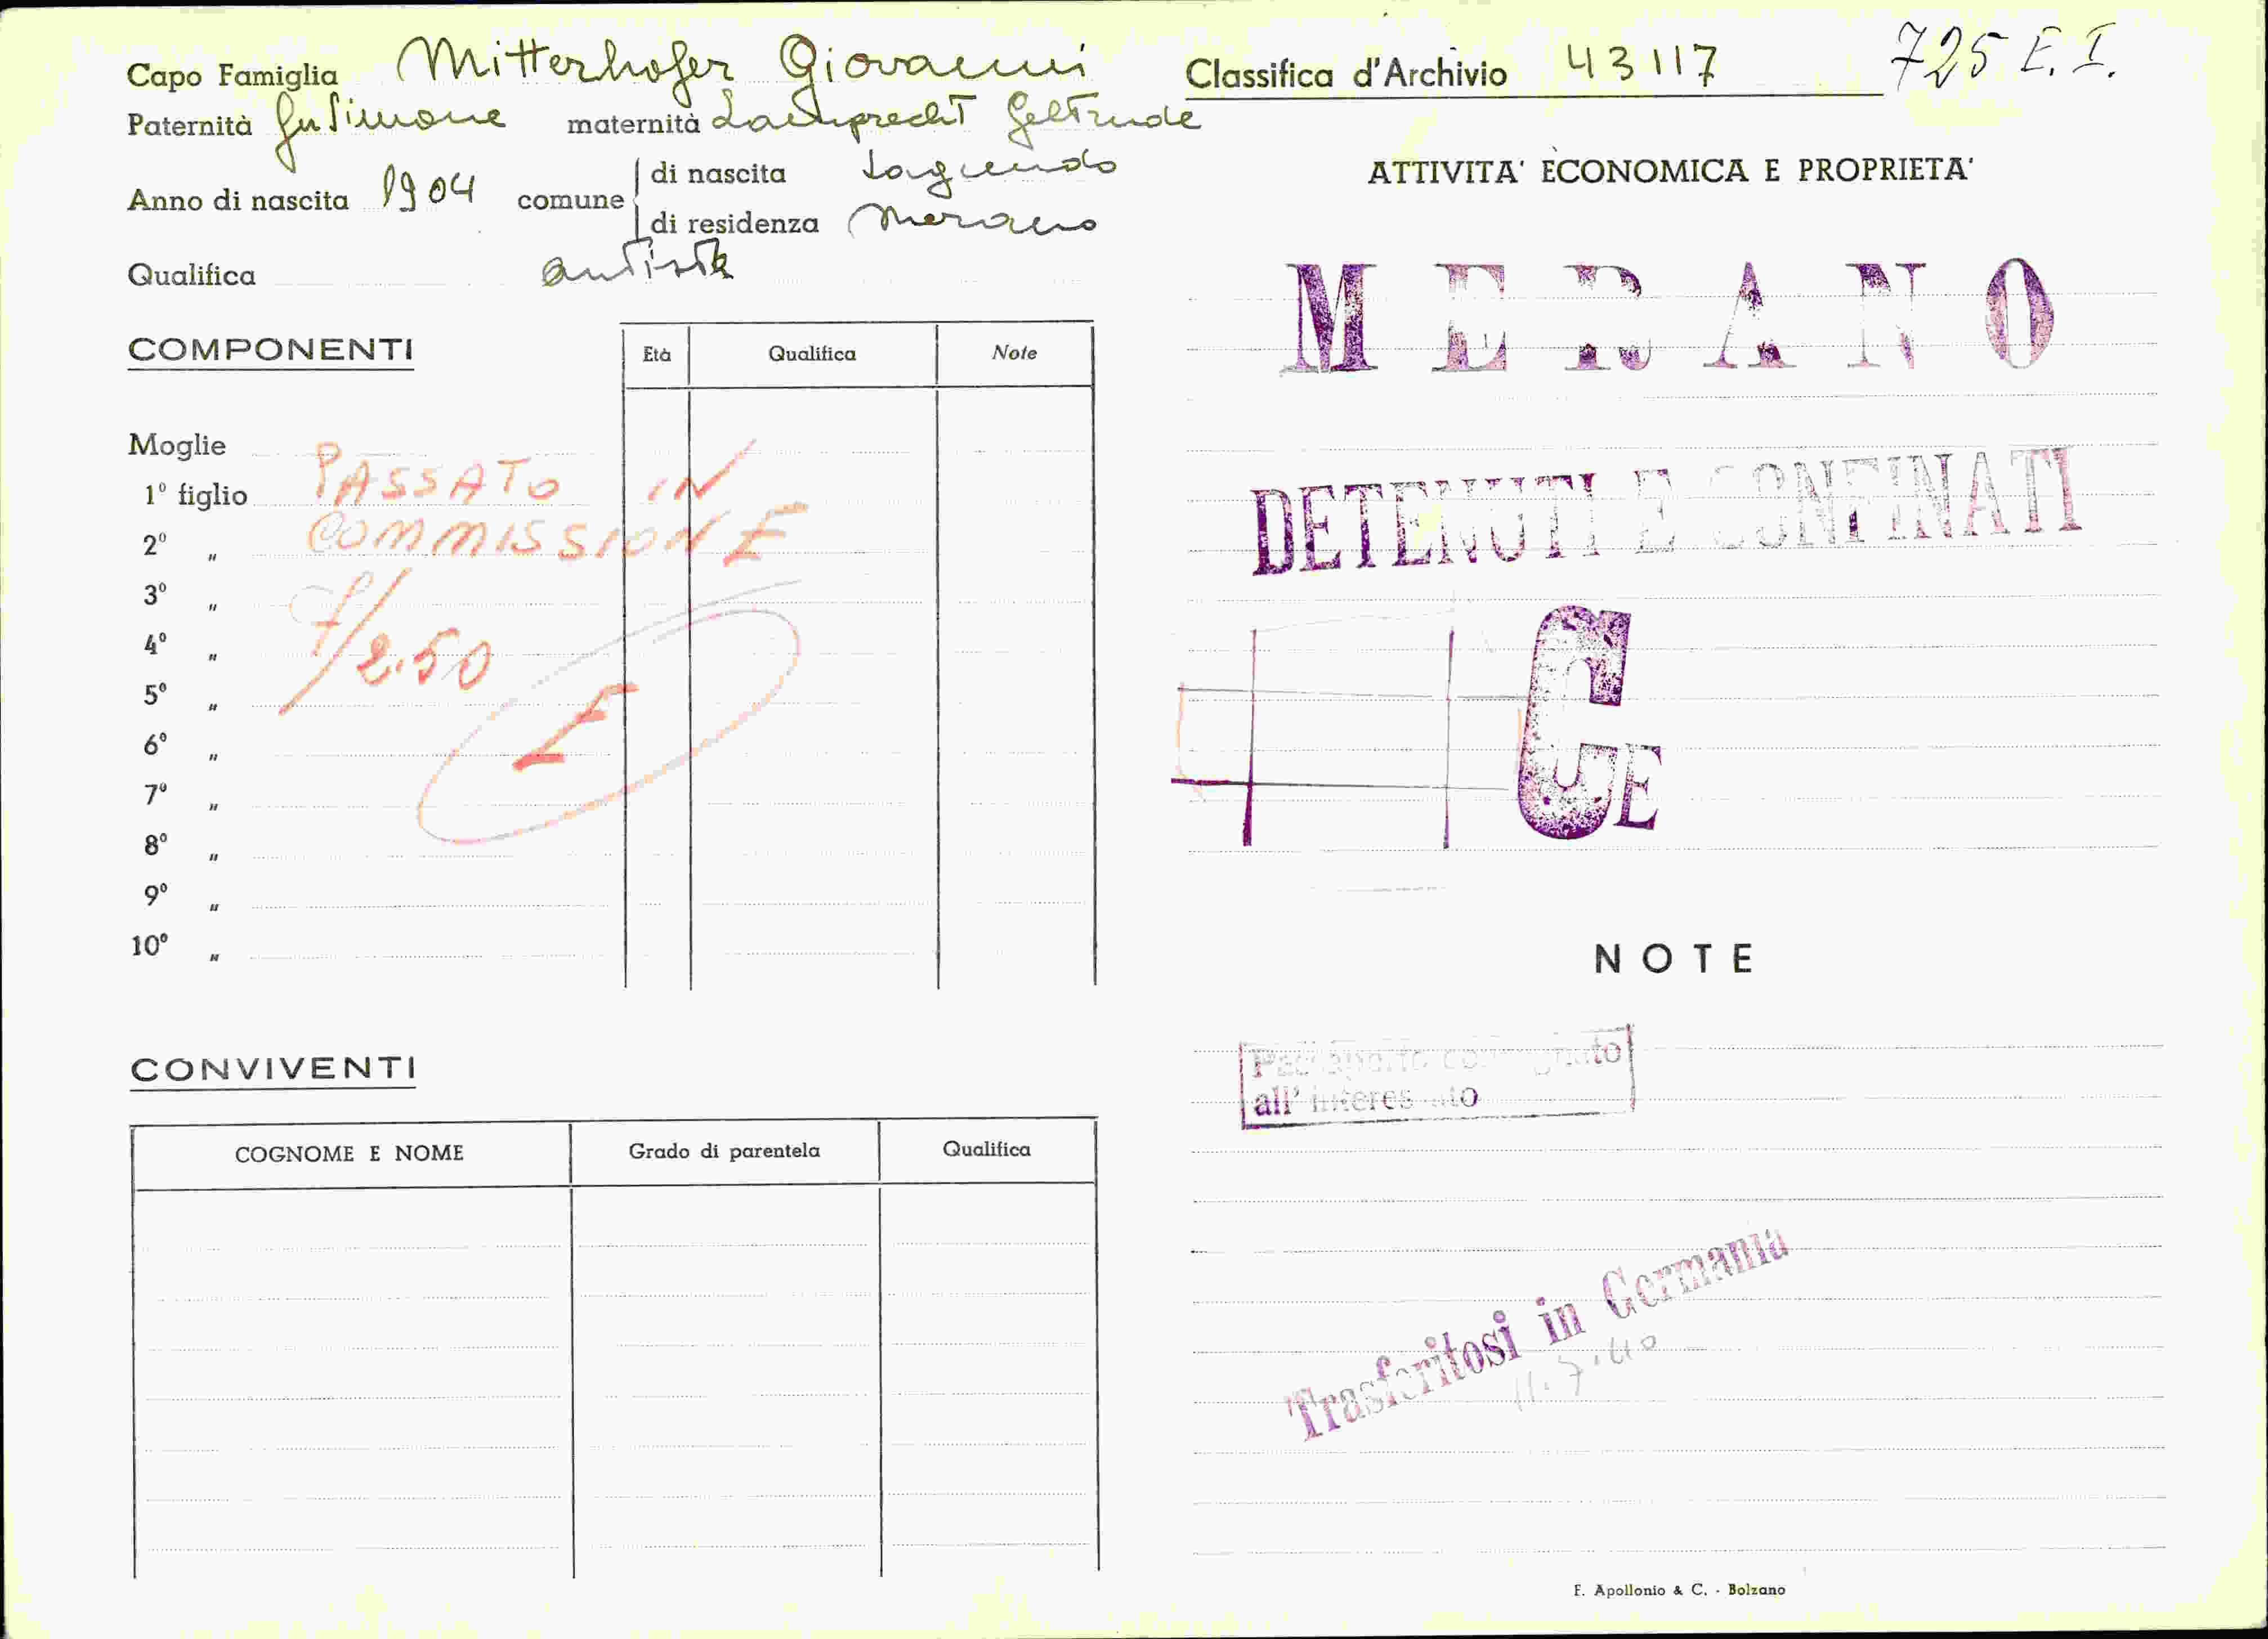 Capo Famiglia Mitterhofer Giovanni
Paternità fu Simone maternità Lamprecht Geltrude
Anno di nascita 1904 comune di nascita Lagundo
di residenza Merano
Qualifica autista
COMPONENTI Età Qualifica Note
Moglie
1° figlio
2° "
3° "
4° "
5° "
6° "
7° "
8° "
9° "
10° "
PASSATO IN
COMMISSIONE
f/2.50
E
CONVIVENTI
COGNOME E NOME Grado di parentela Qualifica
Classifica d'Archivio 43117 725 E. I.
ATTIVITA' ECONOMICA E PROPRIETA'
MERANO
DETENUTI E CONFINATI
C E
NOTE
Passaporto consegnato
all'interessato
Trasferitosi in Germania
11.7.40
F. Apollonio & C. - Bolzano